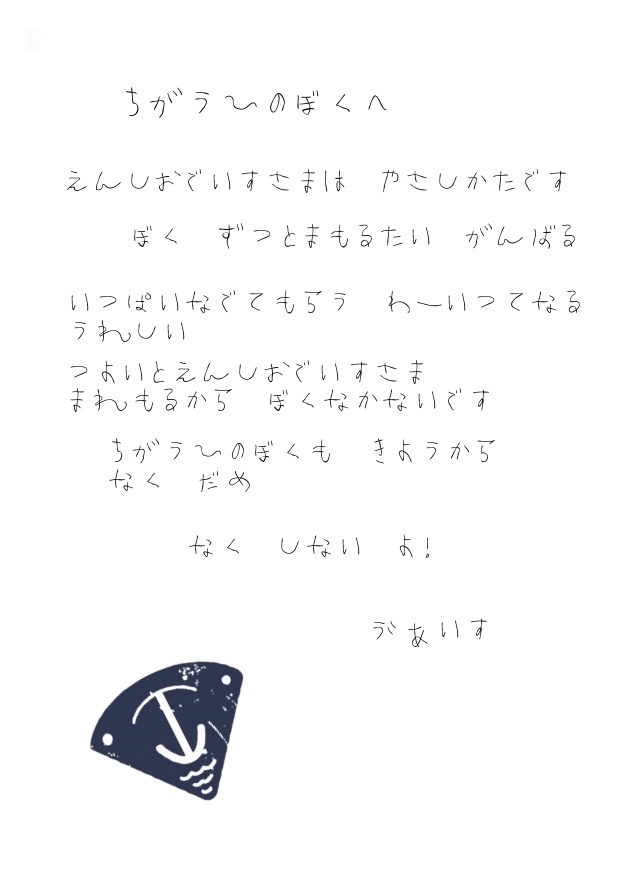 ちがうひのぼくへ
えんしおでいすさまは　やさしかたです
ぼく　ずつとまもるたい　がんばる
いつぱいなでてもらう　わ〜いつてなる
うれしい
つよいとえんしおでいすさま
まれもるから　ぼくなかないです
ちがうひのぼくも　きようから
なく　だめ
なく　しない　よ!
ゔぁいす